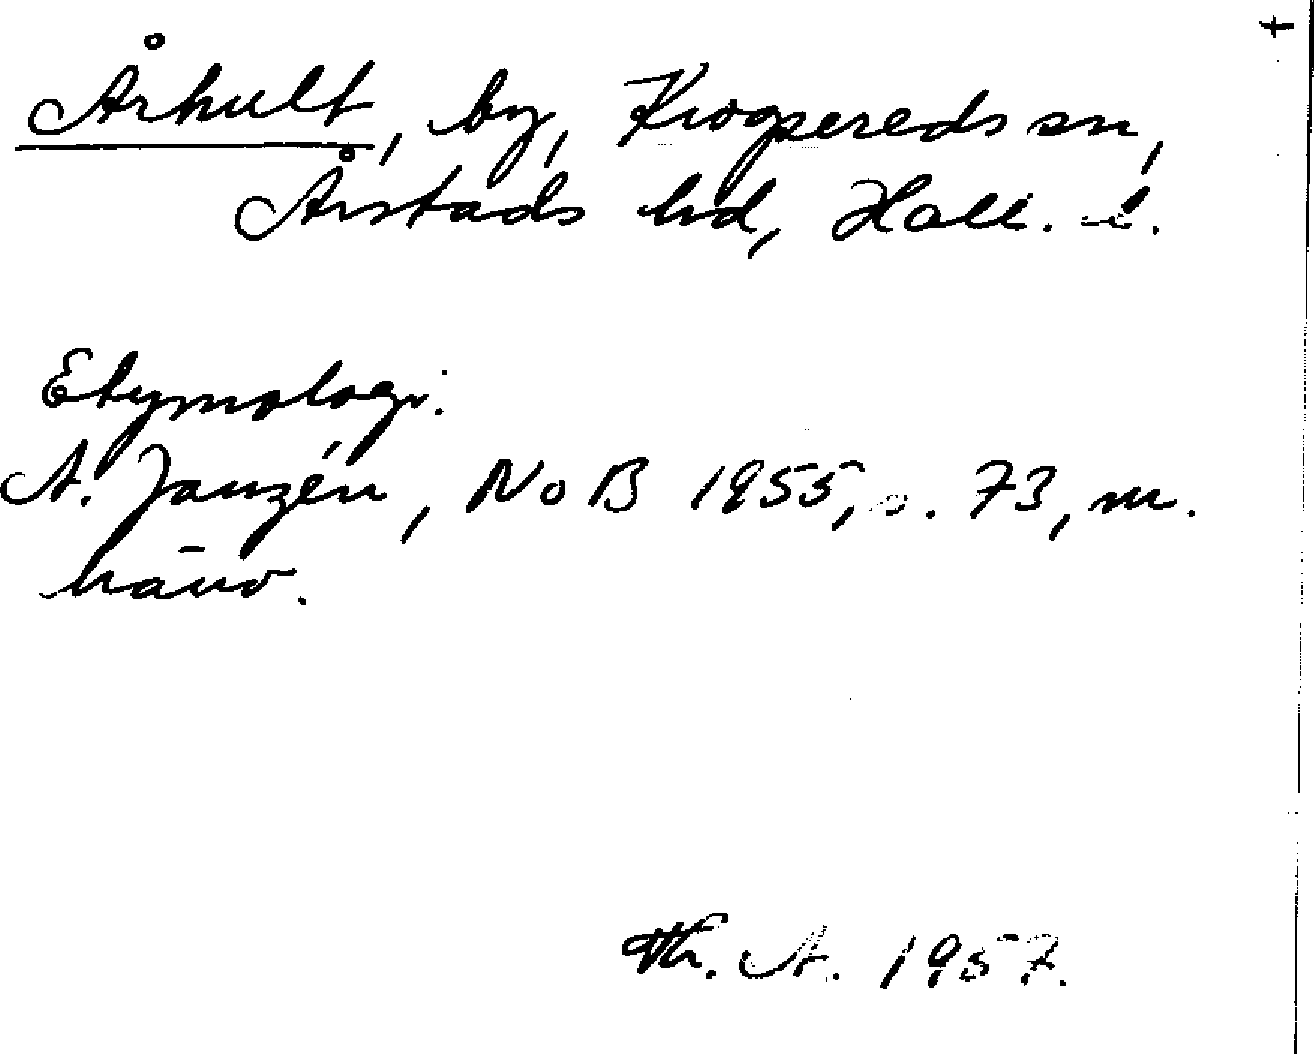 Århult, by, Krogsereds sn,
Årstads hd, Hall. l.
Etymologi:
A. Janzén, NoB 1955, s. 73, m.
hänv.
Th. A. 1957.